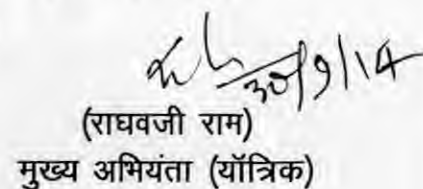 30/9/14
(राघवजी राम)
मुख्य अभियंता (यॉत्रिक)